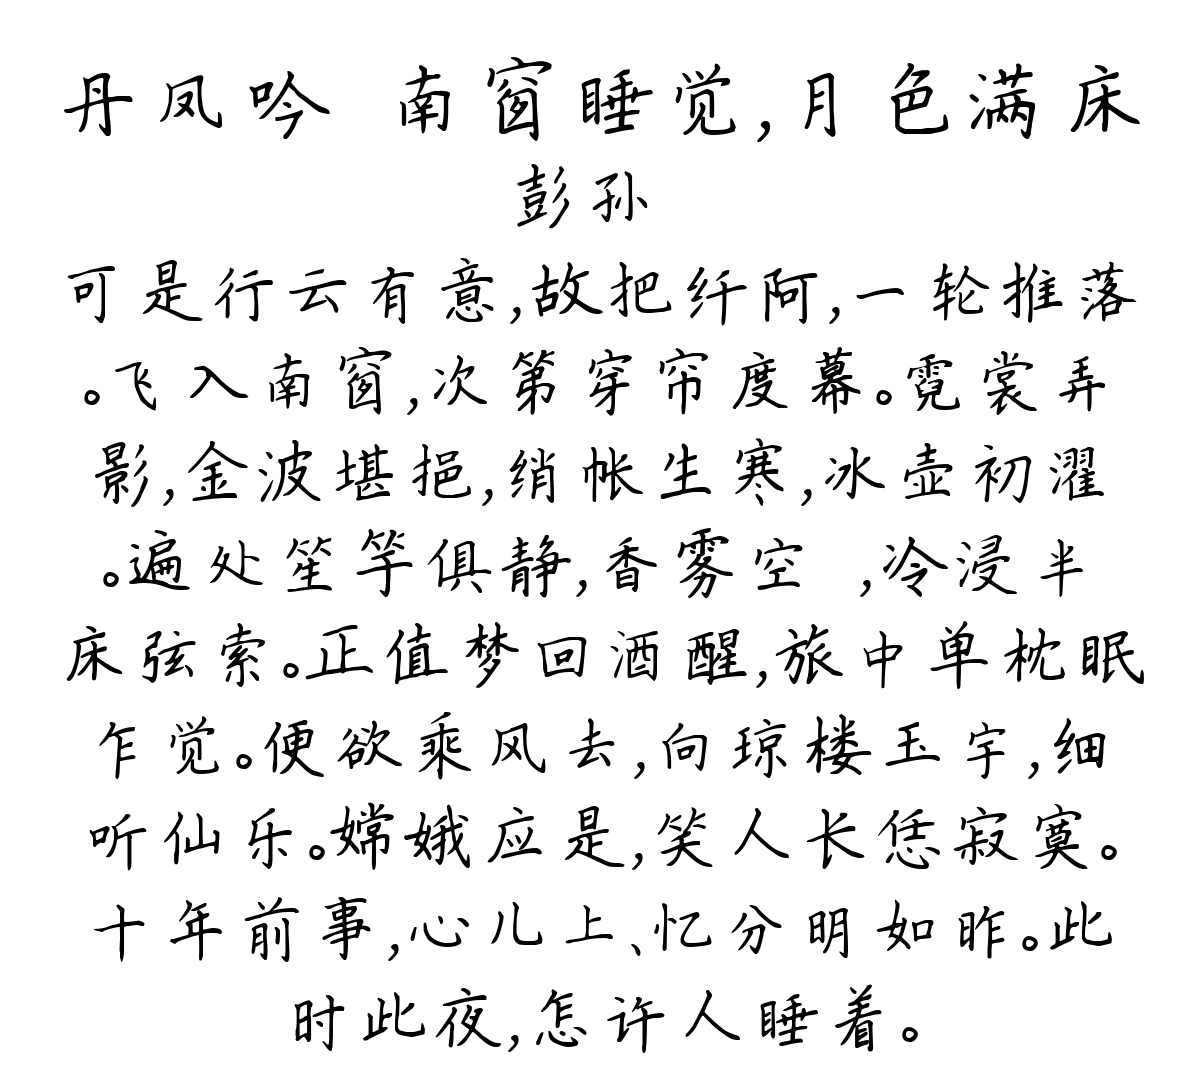 丹凤吟 南窗睡觉,月色满床
彭孙
可是行云有意,故把纤阿,一轮推落
。飞入南窗,次第穿帘度幕。霓裳弄
影,金波堪挹,绡帐生寒,冰壶初濯
。遍处笙竽俱静,香雾空 ,冷浸半
床弦索。正值梦回酒醒,旅中单枕眠
乍觉。便欲乘风去,向琼楼玉宇,细
听仙乐。嫦娥应是,笑人长恁寂寞。
十年前事,心儿上、忆分明如昨。此
时此夜,怎许人睡着。